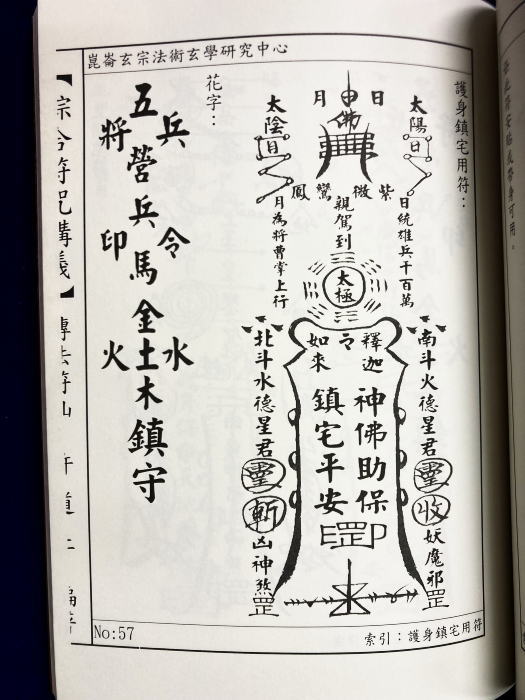 崑崙玄宗法術玄學研究中心
護身鎮宅用符:
太陽
日
日統雄兵千百萬
南斗火德星君
收妖魔邪
日月
佛
紫微鸞鳳
親駕到
太極
釋迦
如來
神佛助保
鎮宅平安
太陰
月為將曹掌上行
北斗水德星君
斬凶神煞
花字:
兵
五營兵馬
將
令
印
金土木鎮守
水
火
【綜合符咒講義】
索引:護身鎮宅用符
No:57